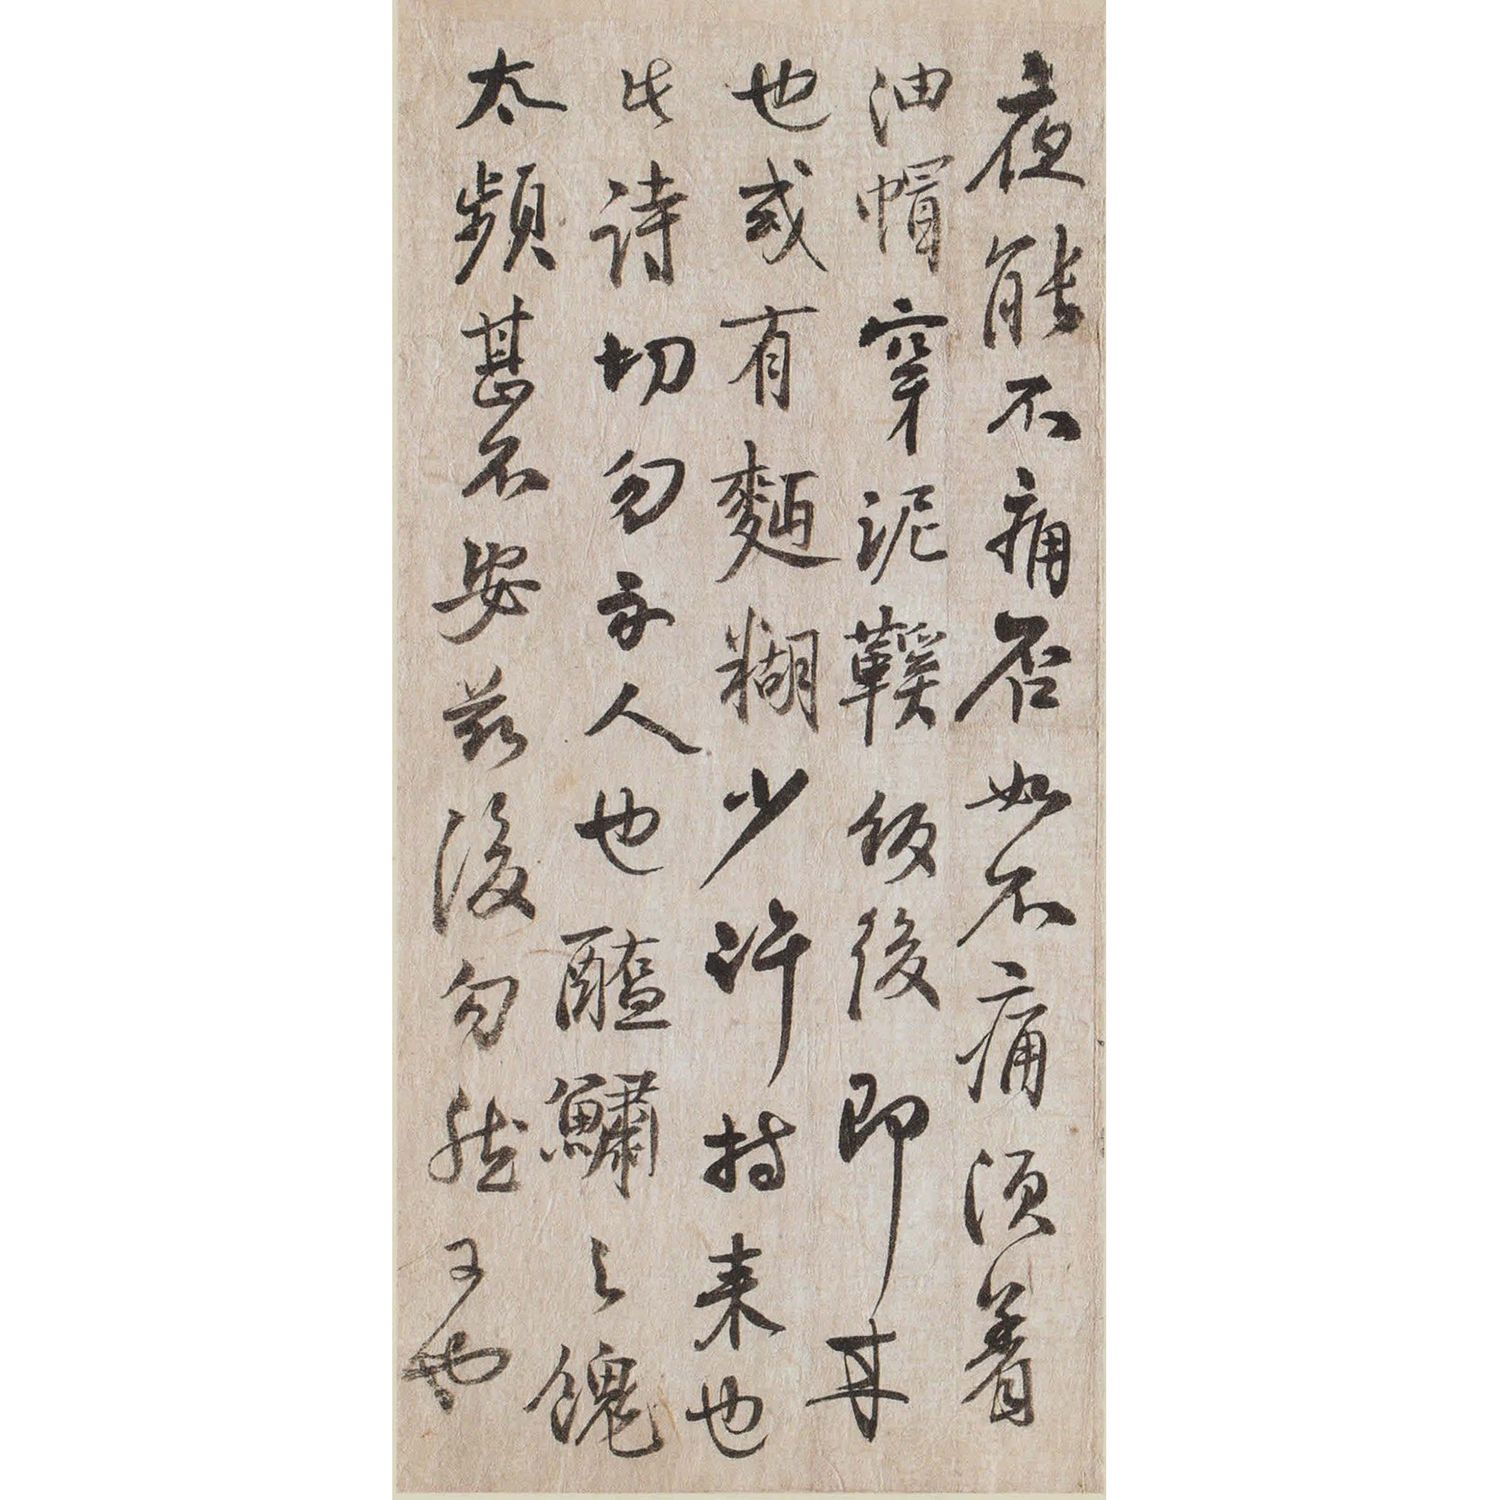 夜能不痛否如不痛須着
油帽穿泥鞵飯後即来
也或有麵糊少許持来也
此詩切勿示人也醯鱐之餽
太頻甚不安茲後勿然可也